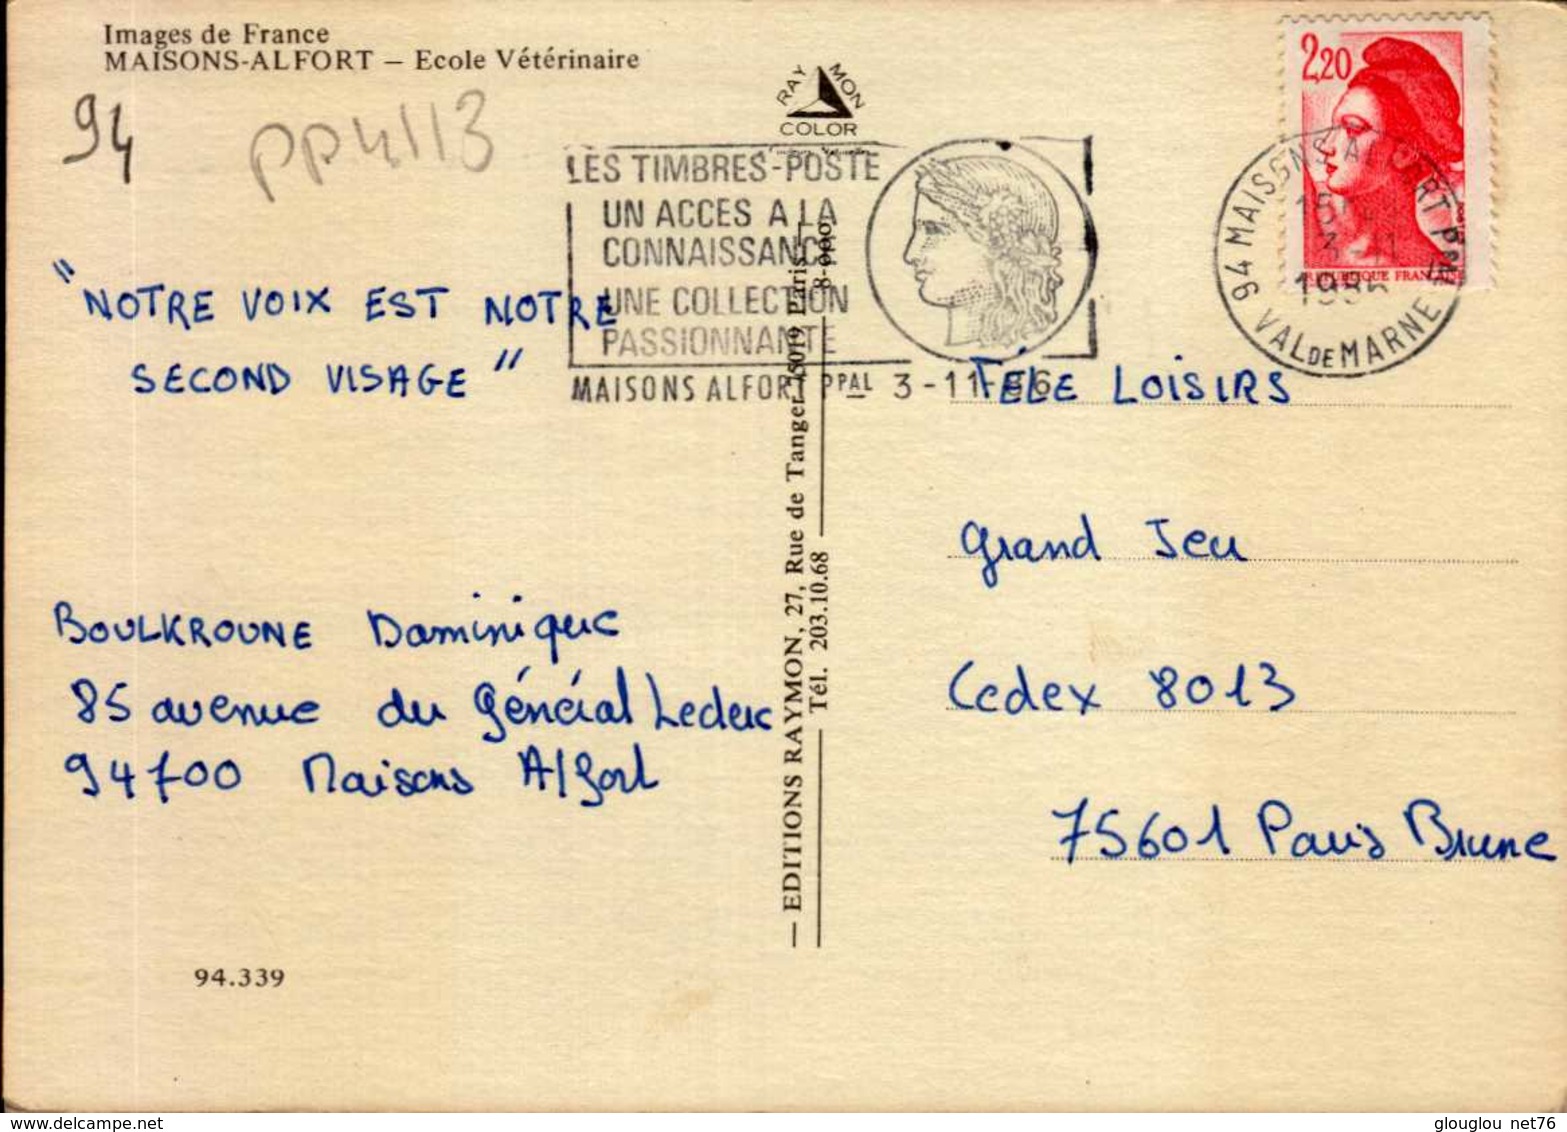 Images de France
MAISONS-ALFORT – Ecole Vétérinaire
94
PP4113
RAYMON
COLOR
2,20
REPUBLIQUE FRANCAISE
LES TIMBRES-POSTE
UN ACCES A LA
CONNAISSANCE
UNE COLLECTION
PASSIONNANTE
MAISONS ALFORT PPAL 3-11-86
94 MAISONS ALFORT PPAL
3-11
1986
VAL DE MARNE
"NOTRE VOIX EST NOTRE
SECOND VISAGE"
BOULKROUNE Dominique
85 avenue du Général Leclerc
94700 Maisons Alfort
94.339
— EDITIONS RAYMON, 27, Rue de Tanger 75019 Paris —
Tél. 203.10.68
TÉLÉ LOISIRS
Grand Jeu
Cedex 8013
75601 Paris Brune
glouglou net76